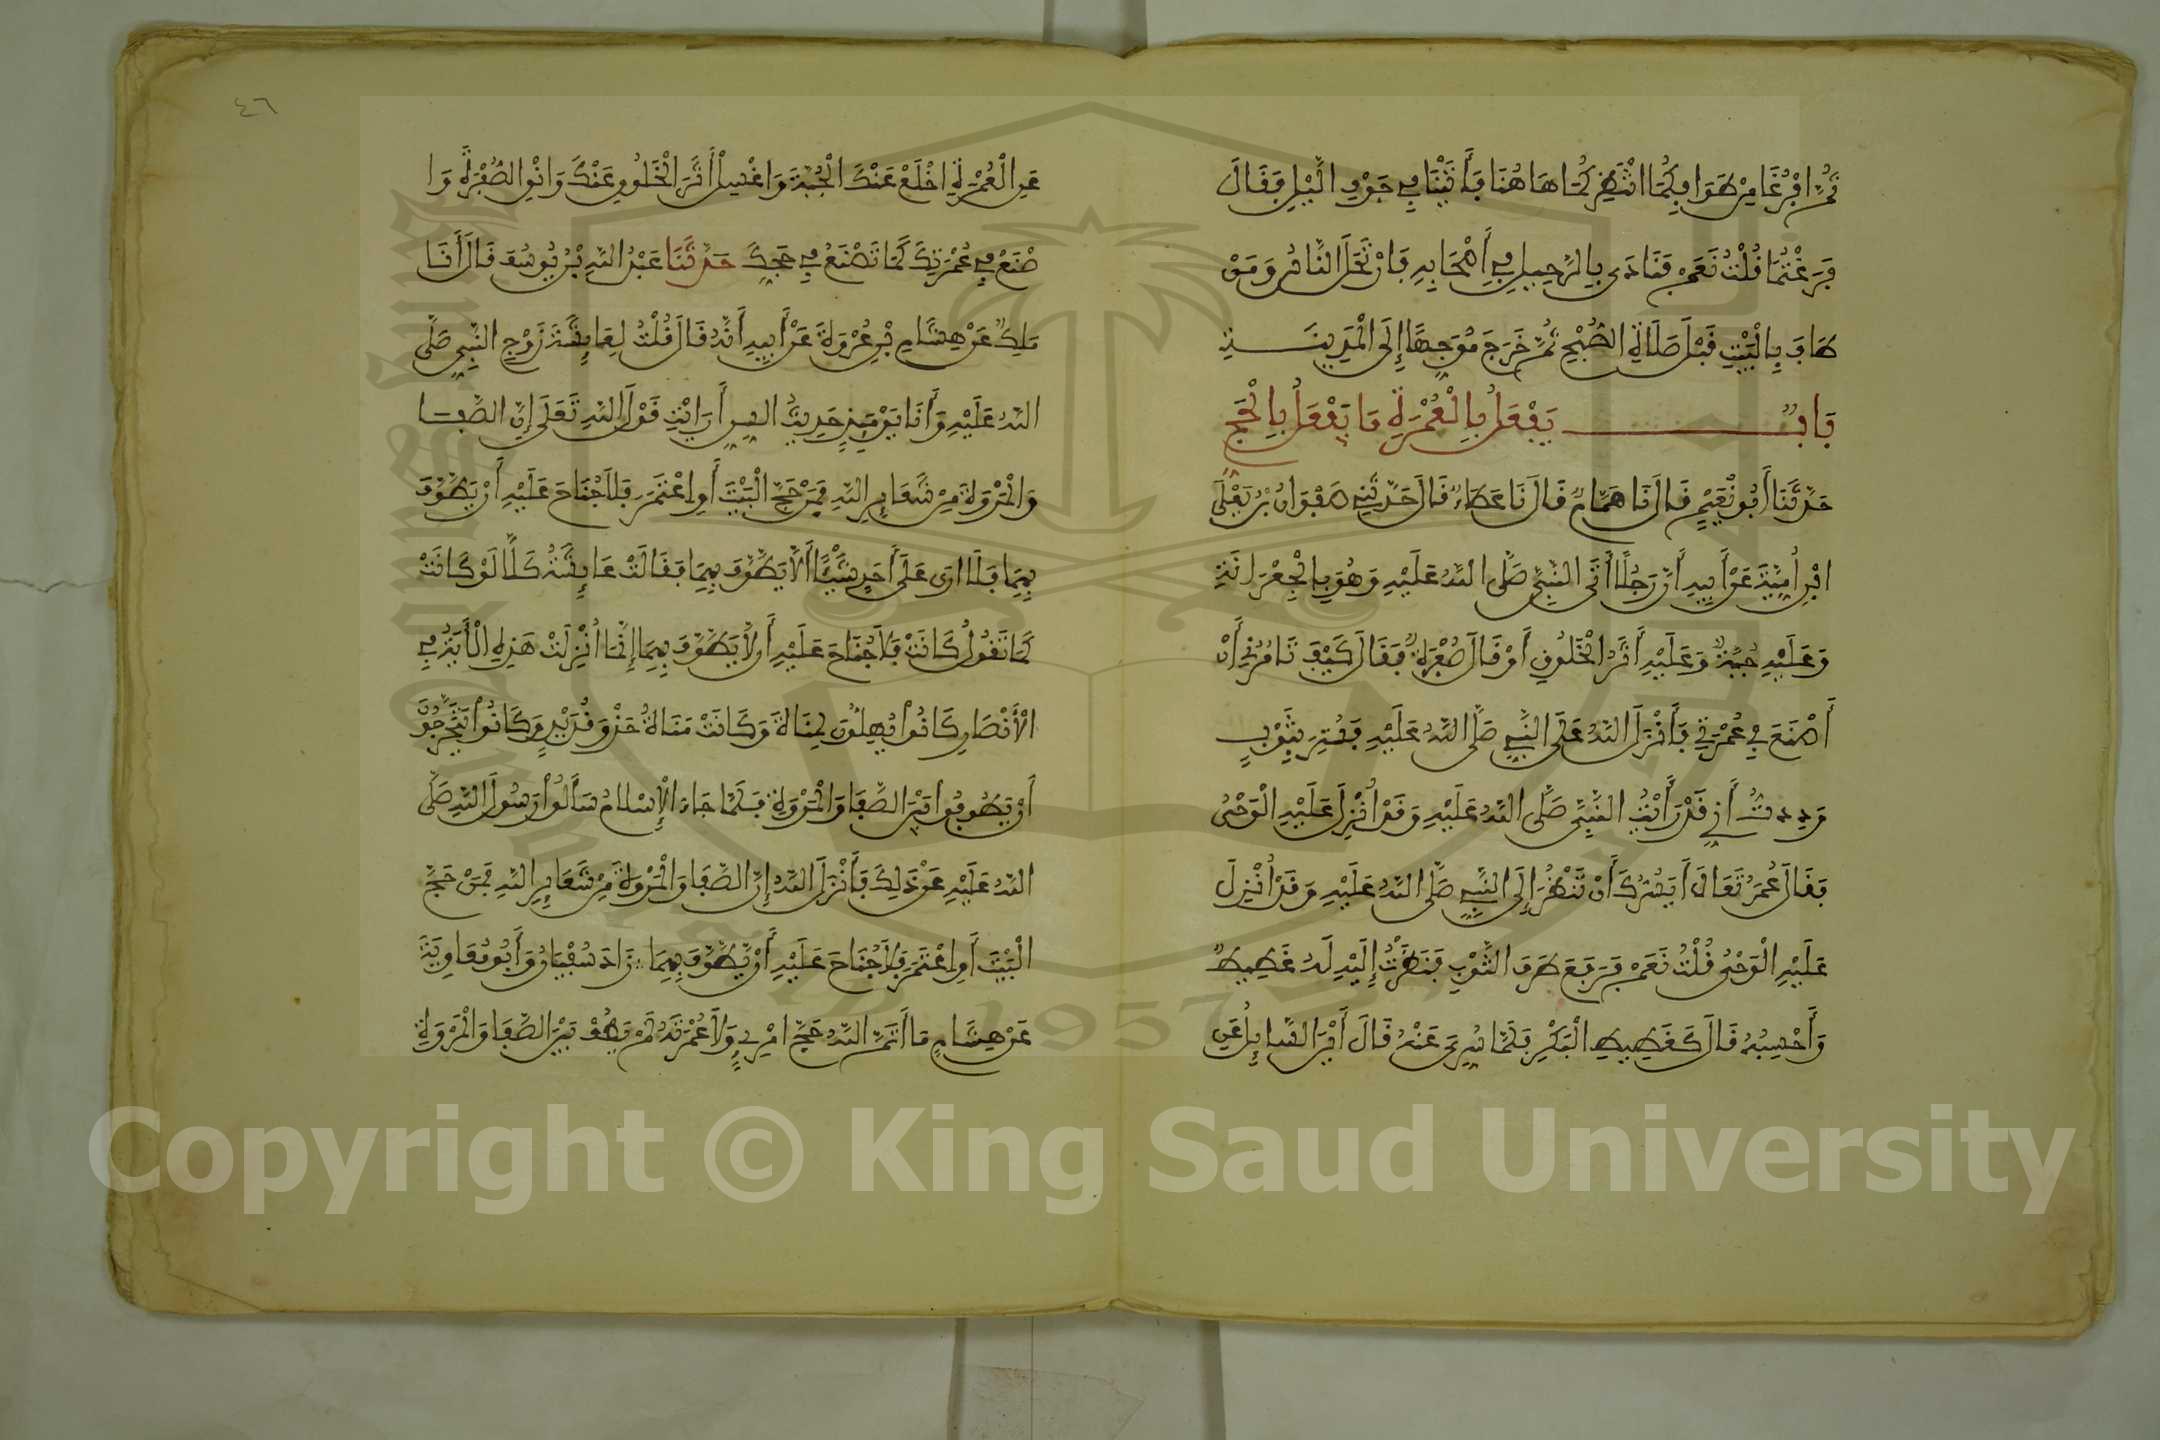 ثُمَّ افْرُغَا مِنْ طَوَافِكُمَا انْتَظِرْكُمَا هَاهُنَا فَأَتَيْنَا فِي جَوْفِ الَّيْلِ فَقَالَ
فَرَغْتُمَا قُلْتُ نَعَمْ فَنَادَى بِالرَّحِيلِ فِي أَصْحَابِهِ فَارْتَحَلَ النَّاسُ وَمَنْ
طَافَ بِالْبَيْتِ قَبْلَ صَلَاةِ الصُّبْحِ ثُمَّ خَرَجَ مُوَجِّهًا إِلَى الْمَدِينَةِ
بَابٌ يَفْعَلُ بِالْعُمْرَةِ مَا يَفْعَلُ بِالْحَجِّ
حَدَّثَنَا أَبُو نُعَيْمٍ قَالَ نَا هَمَّامٌ قَالَ نَا عَطَاءٌ قَالَ حَدَّثَنِي صَفْوَانُ بْنُ يَعْلَى
ابْنِ أُمَيَّةَ عَنْ أَبِيهِ أَنَّ رَجُلًا أَتَى النَّبِيَّ صَلَّى اللَّهُ عَلَيْهِ وَهُوَ بِالْجِعْرَانَةِ
وَعَلَيْهِ جُبَّةٌ وَعَلَيْهِ أَثَرُ الْخَلُوقِ أَوْ قَالَ صُفْرَةٌ فَقَالَ كَيْفَ تَامُرُنِي أَنْ
أَصْنَعَ فِي عُمْرَتِي فَأَنْزَلَ اللَّهُ عَلَى النَّبِيِّ صَلَّى اللَّهُ عَلَيْهِ فَسُتِرَ بِثَوْبٍ
وَدِدتُ أَنِّي قَدْ رَأَيْتُ النَّبِيَّ صَلَّى اللَّهُ عَلَيْهِ وَقَدْ أُنْزِلَ عَلَيْهِ الْوَحْيُ
فَقَالَ عُمَرُ تَعَالَ أَيَسُرُّكَ أَنْ تَنْظُرَ إِلَى النَّبِيِّ صَلَّى اللَّهُ عَلَيْهِ وَقَدْ أُنْزِلَ
عَلَيْهِ الْوَحْيُ قُلْتُ نَعَمْ فَرَفَعَ طَرَفَ الثَّوْبِ فَنَظَرْتُ إِلَيْهِ لَهُ غَطِيطٌ
وَأَحْسِبُهُ قَالَ كَغَطِيطِ الْبَكْرِ فَلَمَّا سُرِّيَ عَنْهُ قَالَ أَيْنَ السَّايِلُ عَنِ
٤٦
عَنِ الْعُمْرَةِ اخْلَعْ عَنْكَ الْجُبَّةَ وَاغْسِلْ أَثَرَ الْخَلُوقِ عَنْكَ وَانْقِ الصُّفْرَةَ وَا
صْنَعْ فِي عُمْرَتِكَ كَمَا تَصْنَعُ فِي حَجِّكَ حَدَّثَنَا عَبْدُ اللَّهِ بْنُ يُوسُفَ قَالَ أَنَا
مَلِكٌ عَنْ هِشَامِ بْنِ عُرْوَةَ عَنْ أَبِيهِ أَنَّهُ قَالَ قُلْتُ لِعَايِشَةَ زَوْجِ النَّبِيِّ صَلَّى
اللَّهُ عَلَيْهِ وَأَنَا يَوْمَئِذٍ حَدِيثُ السِّنِّ أَرَايْتِ قَوْلَ اللَّهِ تَعَلَى إِنَّ الصَّفَا
وَالْمَرْوَةَ مِنْ شَعَايِرِ اللَّهِ فَمَنْ حَجَّ الْبَيْتَ أَوِ اعْتَمَرَ فَلَا جُنَاحَ عَلَيْهِ أَنْ يَطَّوَّفَ
بِهِمَا فَلَا ارَى عَلَى أَحَدٍ شَيْئًا أَلَّا يَطَّوَّفَ بِهِمَا فَقَالَتْ عَايِشَةُ كَلَّا لَوْ كَانَتْ
كَمَا تَقُولُ كَانَتْ فَلَا جُنَاحَ عَلَيْهِ أَن لَّا يَطَّوَّفَ بِهِمَا إِنَّمَا أُنْزِلَتْ هَذِهِ الْأَيَةُ فِي
الْأَنْصَارِ كَانُوا يُهِلُّونَ لِمَنَاةَ وَكَانَتْ مَنَاةُ حَذْوَ قُدَيْدٍ وَكَانُوا يَتَحَرَّجُونَ
أَنْ يَطُوفُوا بَيْنَ الصَّفَا وَالْمَرْوَةِ فَلَمَّا جَاءَ الْإِسْلَامُ سَأَلُوا رَسُولَ اللَّهِ صَلَّى
اللَّهُ عَلَيْهِ عَنْ ذَلِكَ فَأَنْزَلَ اللَّهُ إِنَّ الصَّفَا وَالْمَرْوَةَ مِنْ شَعَايِرِ اللَّهِ فَمَنْ حَجَّ
الْبَيْتَ أَوِ اعْتَمَرَ فَلَا جُنَاحَ عَلَيْهِ أَنْ يَّطَّوَّفَ بِهِمَا زَادَ سُفْيَانُ وَأَبُو مُعَاوِيَةَ
عَنْ هِشَامٍ مَا أَتَمَّ اللَّهُ حَجَّ امْرِئٍ وَلَا عُمْرَتَهُ لَمْ يَطُفْ بَيْنَ الصَّفَا وَالْمَرْوَةِ
1957
Copyright © King Saud University